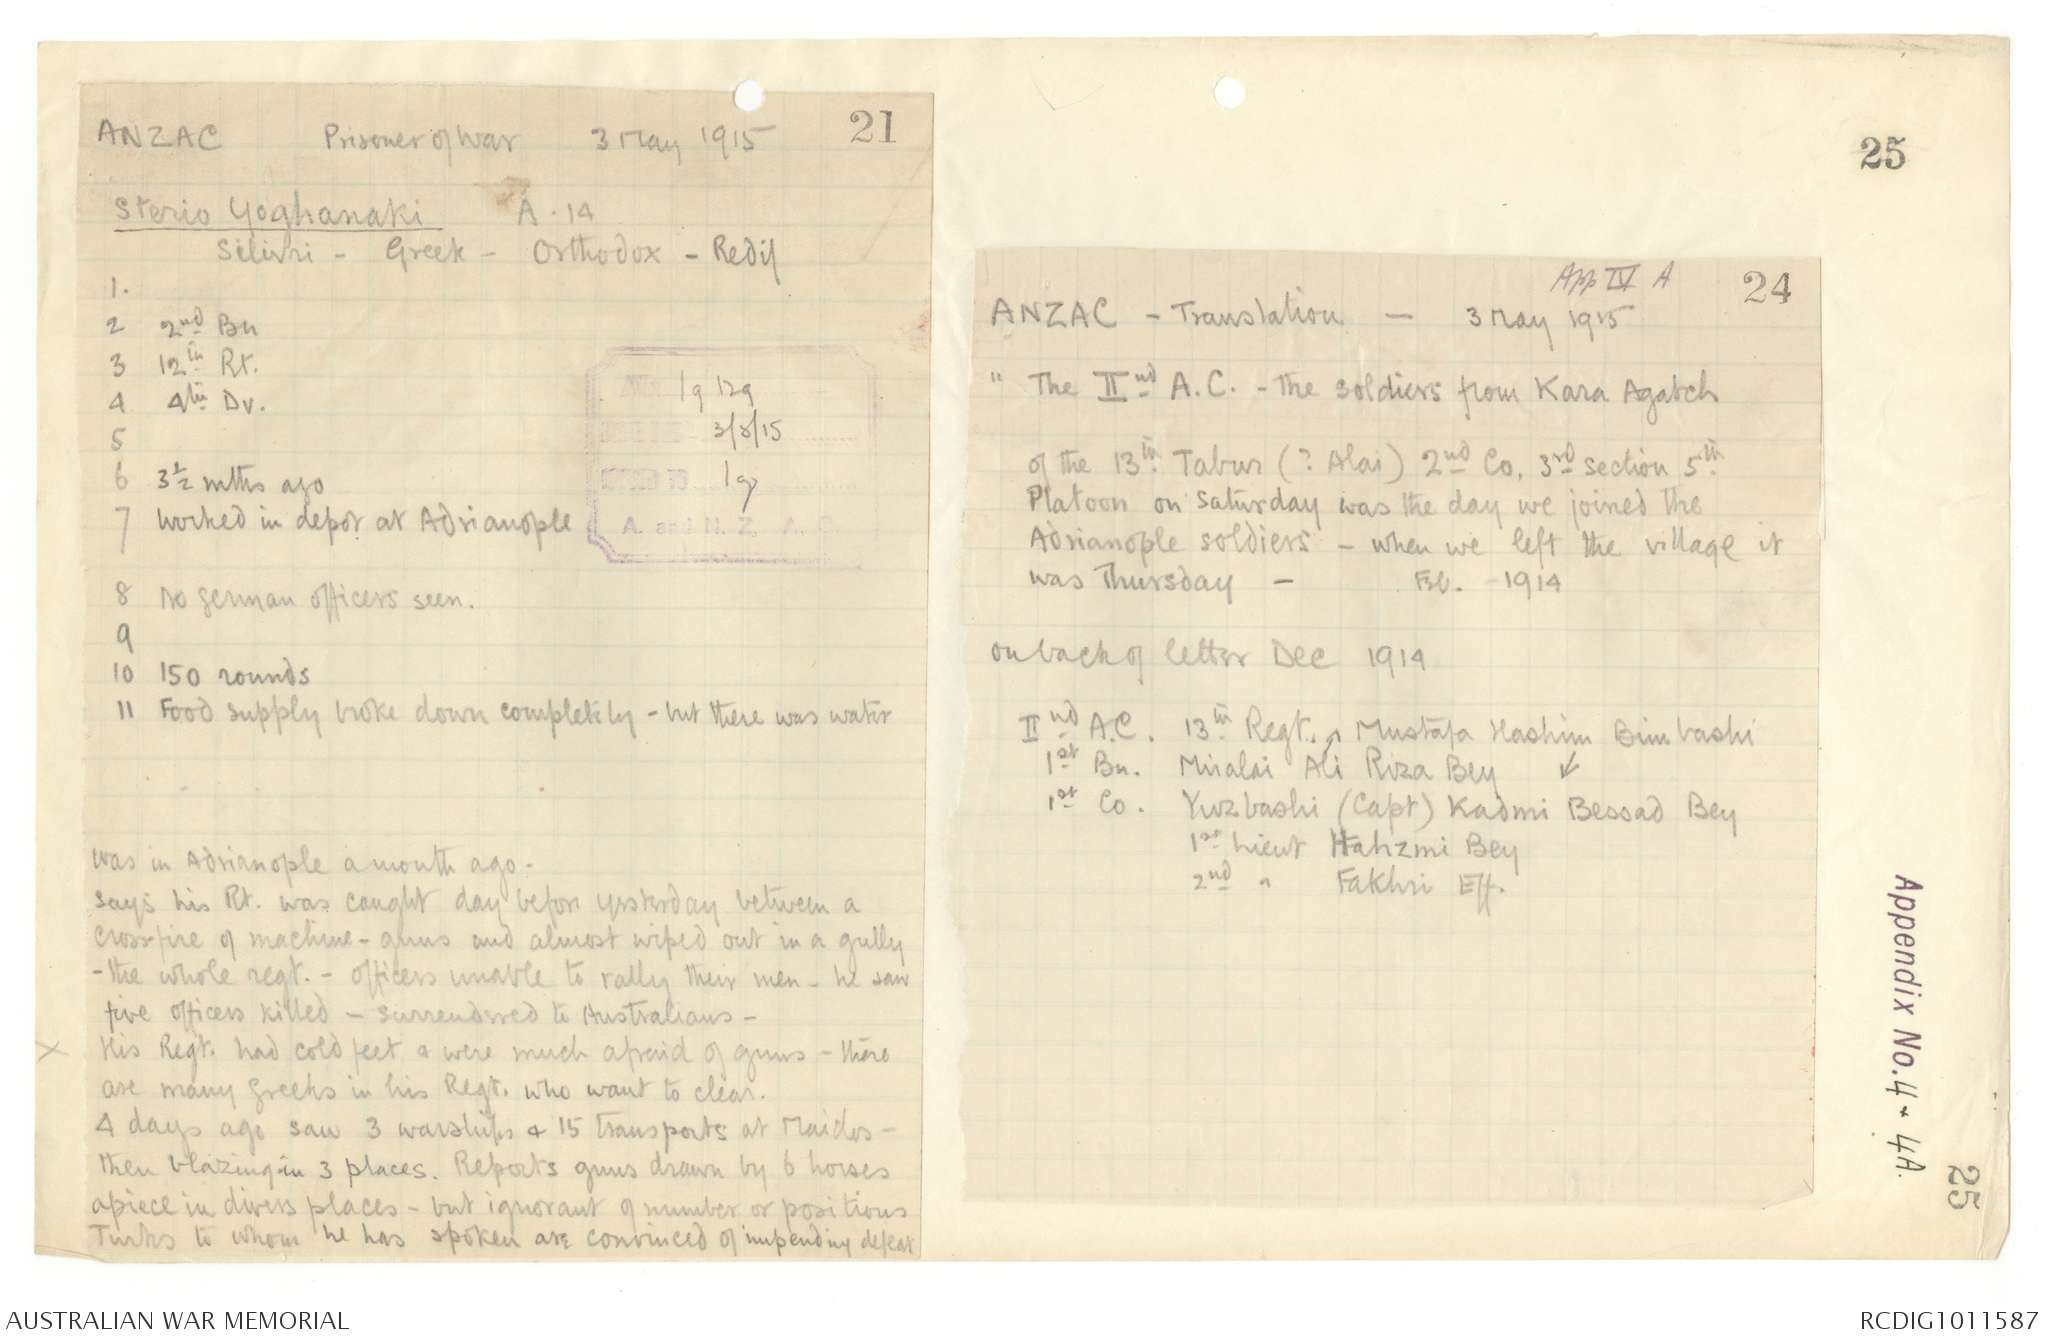 ANZAC Prisoner of War 3 May 1915 21
Sterio Yoghanaki A. 14
Silivri - Greek - Orthodox - Redif
1.
2 2nd Bn
3 12th Rt.
4 4th Dv.
5
6 3½ mths ago
7 worked in depot at Adrianople
8 No German officers seen.
9
10 150 rounds
11 Food supply broke down completely - but there was water
Ig 129
3/5/15
Ig
A. and N. Z. A. C.
was in Adrianople a month ago -
says his Rt. was caught day before yesterday between a
cross-fire of machine-guns and almost wiped out in a gully
- the whole regt. - officers unable to rally their men - he saw
five officers killed - surrendered to Australians -
X His Regt. had cold feet & were much afraid of guns - there
are many Greeks in his Regt. who want to clear.
4 days ago saw 3 warships & 15 transports at Maidos -
then blazing in 3 places. Reports guns drawn by 6 horses
apiece in divers places - but ignorant of number or positions
Turks to whom he has spoken are convinced of impending defeat
25
App IV A 24
ANZAC - Translation - 3 May 1915
" The IInd A.C. - the soldiers from Kara Agatch
of the 13th Tabur (? Alai) 2nd Co, 3rd section 5th
Platoon on Saturday was the day we joined the
Adrianople soldiers - when we left the village it
was Thursday - Feb. 1914
on back of letter Dec 1914
IInd A.C. 13th Regt. Mustafa Hashim Bimbashi
1st Bn. Miralai Ali Riza Bey
1st Co. Yuzbashi (Capt) Kadmi Bessad Bey
1st Lieut Hahzmi Bey
2nd " Fakhri Eff.
Appendix No. 4 & 4A.
25
AUSTRALIAN WAR MEMORIAL
RCDIG1011587